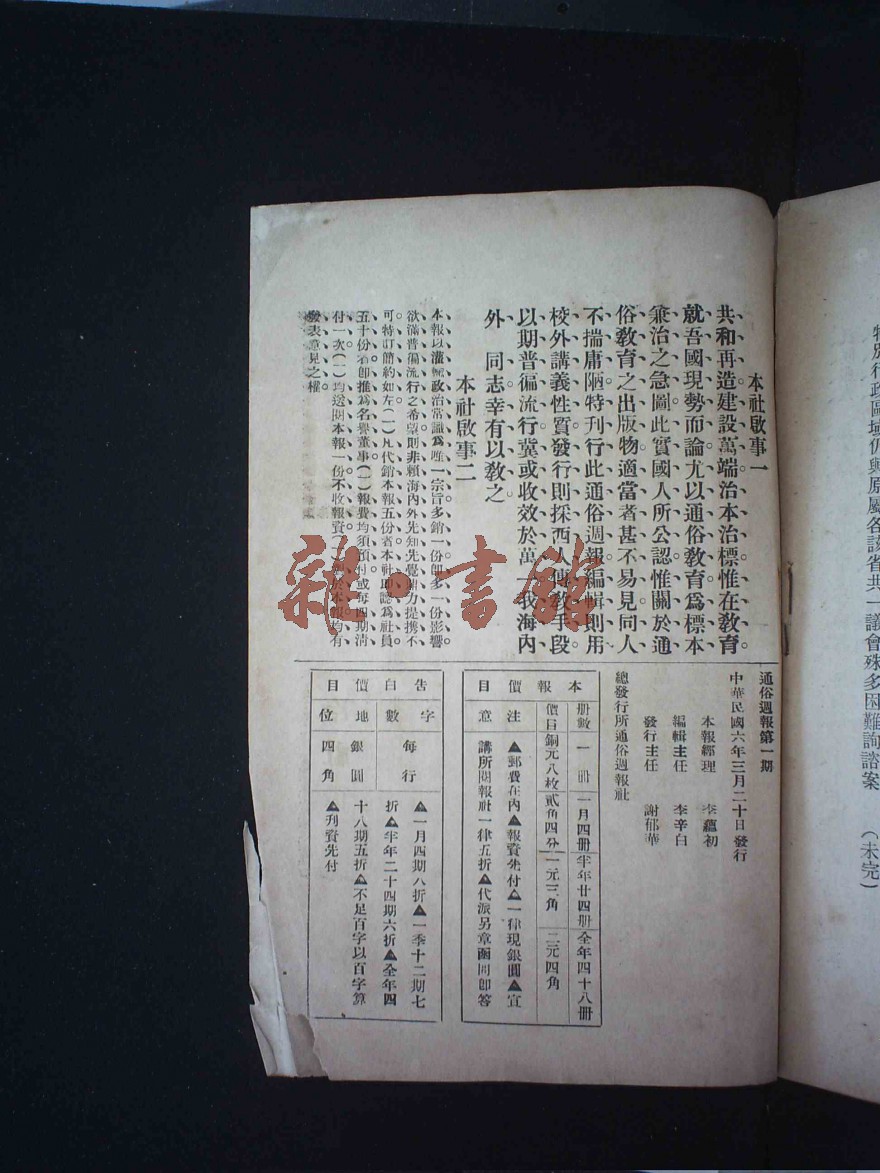 特別行政區域仍與原屬各該省共一議會殊多困難詢諮案 (未完)
本社啟事一
共和再造建設萬端治本治標惟在教育
就吾國現勢而論尤以通俗教育爲標本
兼治之急圖此實國人所公認惟關於通
俗教育之出版物適當者甚不易見同人
不揣庸陋特刊行此通俗週報編輯則用
校外講義性質發行則採西人傳教手段
以期普徧流行冀或收效於萬一我海內
外 同志幸有以敎之
本社啟事二
本報以灌輸政治常識爲唯一宗旨多銷一份卽多一份影響
欲滿普徧流行之希望則非賴海內外先知先覺鼎力提携不
可特訂簡約如左(一)凡代銷本報五份者本社卽認爲社員
五十份者卽推爲名譽董事(一)報費均須預付或每四期淸
付一次(一)均送閱本報一份不收報資(一)對於本報均有
發表意見之權
通俗週報第一期
中華民國六年三月二十日發行
本報經理 李蘊初
編輯主任 李辛白
發行主任 謝郁華
總發行所通俗週報社
本報價目
册數 一册 一月四册 半年廿四册 全年四十八册
價目 銅元八枚 貳角四分 一元三角 二元四角
注意 ▲郵費在內▲報資先付▲一律現銀圓▲宣
講所閱報社一律五折▲代派另章函問卽答
告白價目
字數 每行 ▲一月四期八折▲一季十二期七
折▲半年二十四期六折▲全年四
地位 銀圓四角 十八期五折▲不足百字以百字算
▲刊資先付
雜·書館